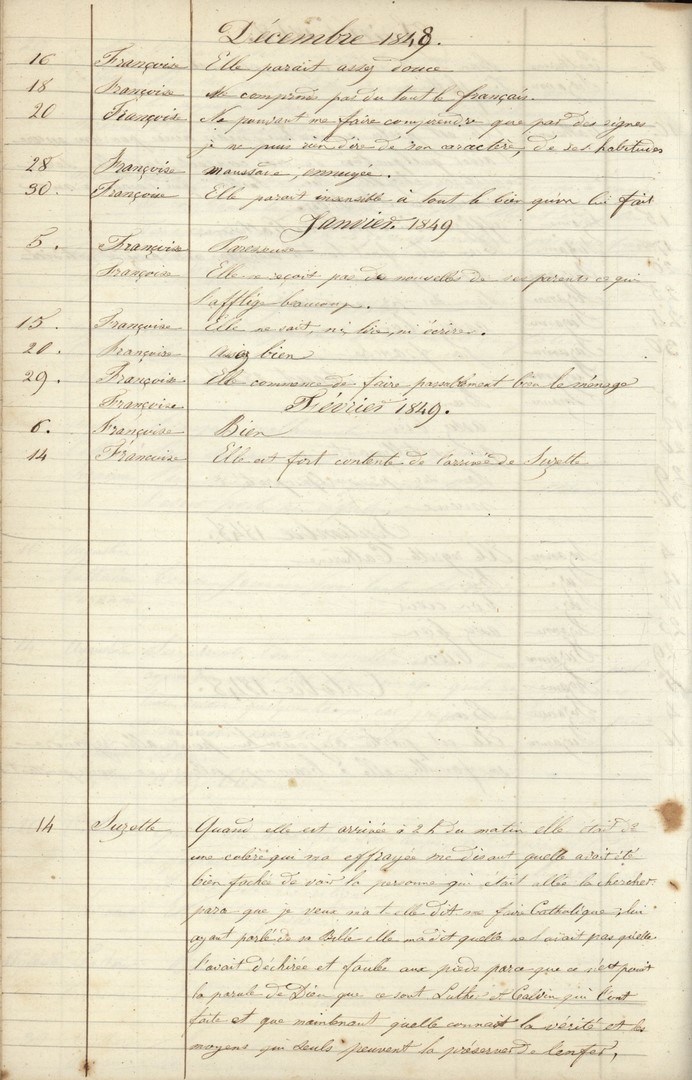 Décembre 1848.
16 Françoise Elle parait assez douce
18 Françoise Ne comprend pas du tout le français.
20 Françoise Ne pouvant me faire comprendre que par des signes
je ne puis rien dire de son caractère, de ses habitudes
28 Françoise maussade, ennuyée.
30. Françoise Elle parait insensible à tout le bien qu'on lui fait
Janvier. 1849
5. Françoise Paresseuse
Françoise Elle ne reçoit pas de nouvelles de ses parents ce qui
l'afflige beaucoup.
15. Françoise Elle ne sait, ni, lire, ni écrire.
20. Françoise assez bien
29. Françoise Elle commence de faire passablement bien le ménage
Françoise Février 1849.
6. Françoise Bien
14 Françoise Elle est fort contente de l'arrivée de Suzette
14 Suzette Quand elle est arrivée à 2 h du matin elle était de
une colère qui m'a effrayée me disant quelle avait été
bien fachée de voir la personne qui était allée la chercher
parce que je veux m'a t-elle dit me faire Catholique; lui
ayant parlé de sa Bible elle m'a dit quelle ne l'avait pas qu'elle
l'avait déchirée et foulée aux pieds parce que ce n'est point
la parole de Dieu que ce sont Luther et Calvin qui l'ont
faite et que maintenant quelle connait la vérité et les
moyens qui seuls peuvent la préserver de l'enfer,